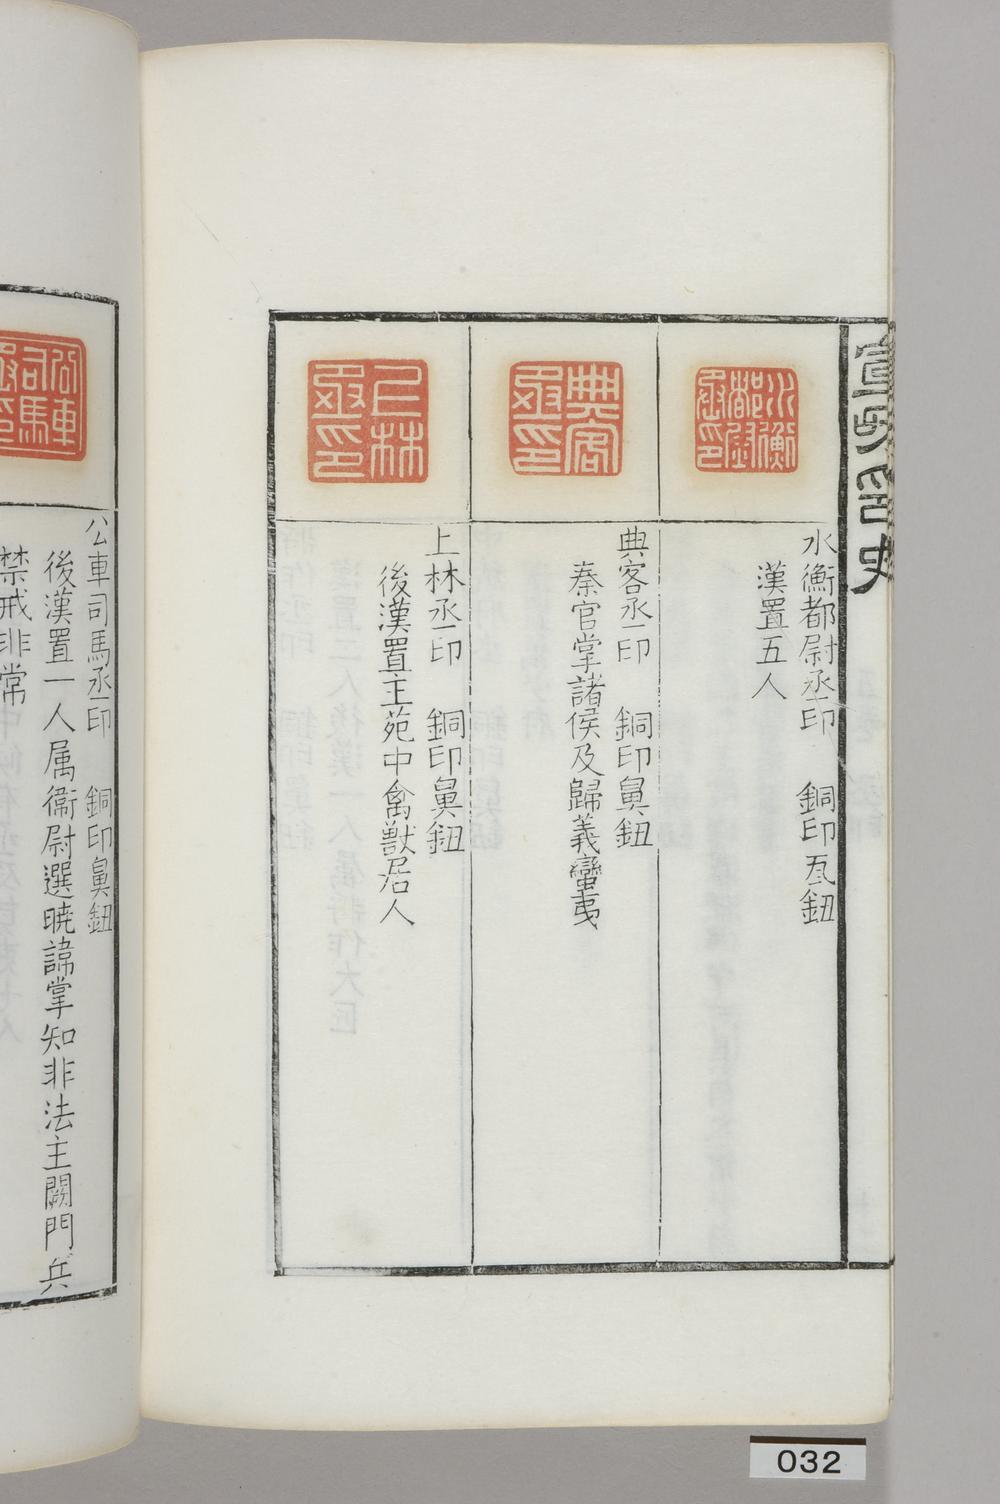 宣和印史
水衡都尉丞印
水衡都尉丞印　銅印瓦鈕
漢置五人
典客丞印
典客丞印　銅印鼻鈕
秦官掌諸侯及歸義蠻夷
上林丞印
上林丞印　銅印鼻鈕
後漢置主苑中禽獸居人
公車司馬丞印
公車司馬丞印　銅印鼻鈕
後漢置一人属衞尉選曉諱掌知非法主闕門兵
禁戒非常
032